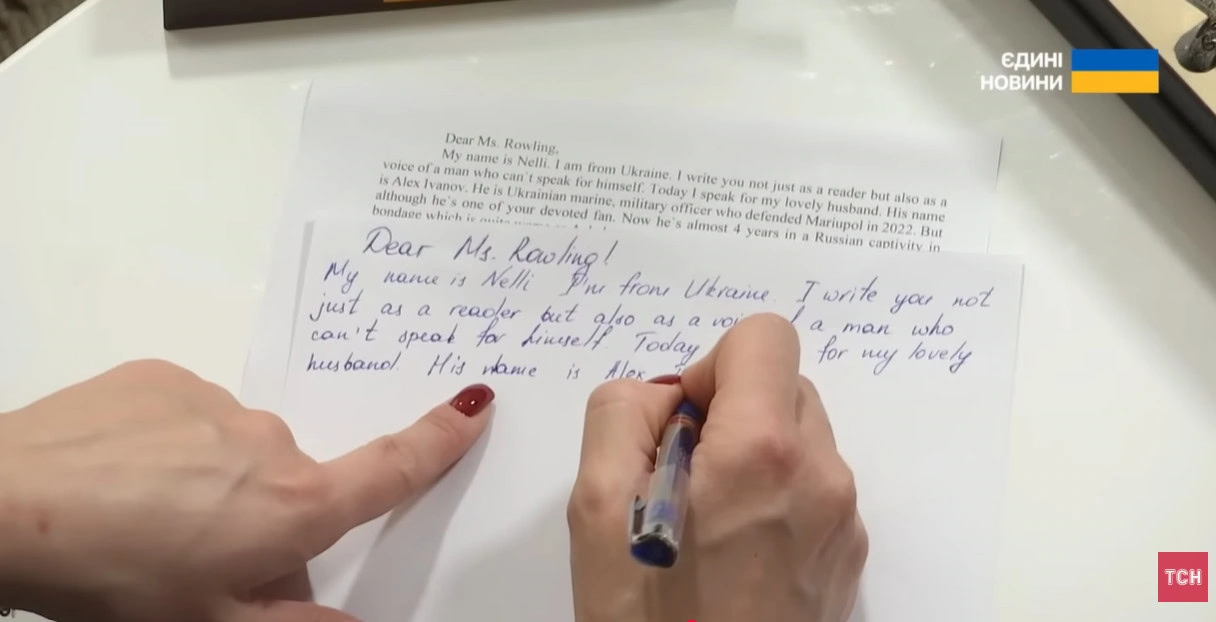 ЄДИНІ
НОВИНИ
Dear Ms. Rowling,
My name is Nelli. I am from Ukraine. I write you not just as a reader but also as a
voice of a man who can`t speak for himself. Today I speak for my lovely husband. His name
is Alex Ivanov. He is Ukrainian marine, military officer who defended Mariupol in 2022. But
although he`s one of your devoted fan. Now he`s almost 4 years in a Russian captivity in
bondage which is
Dear Ms. Rowling!
My name is Nelli I'm from Ukraine. I write you not
just as a reader but also as a a man who
can't speak for himself Today for my lovely
husband. His name is Alex
ТСН